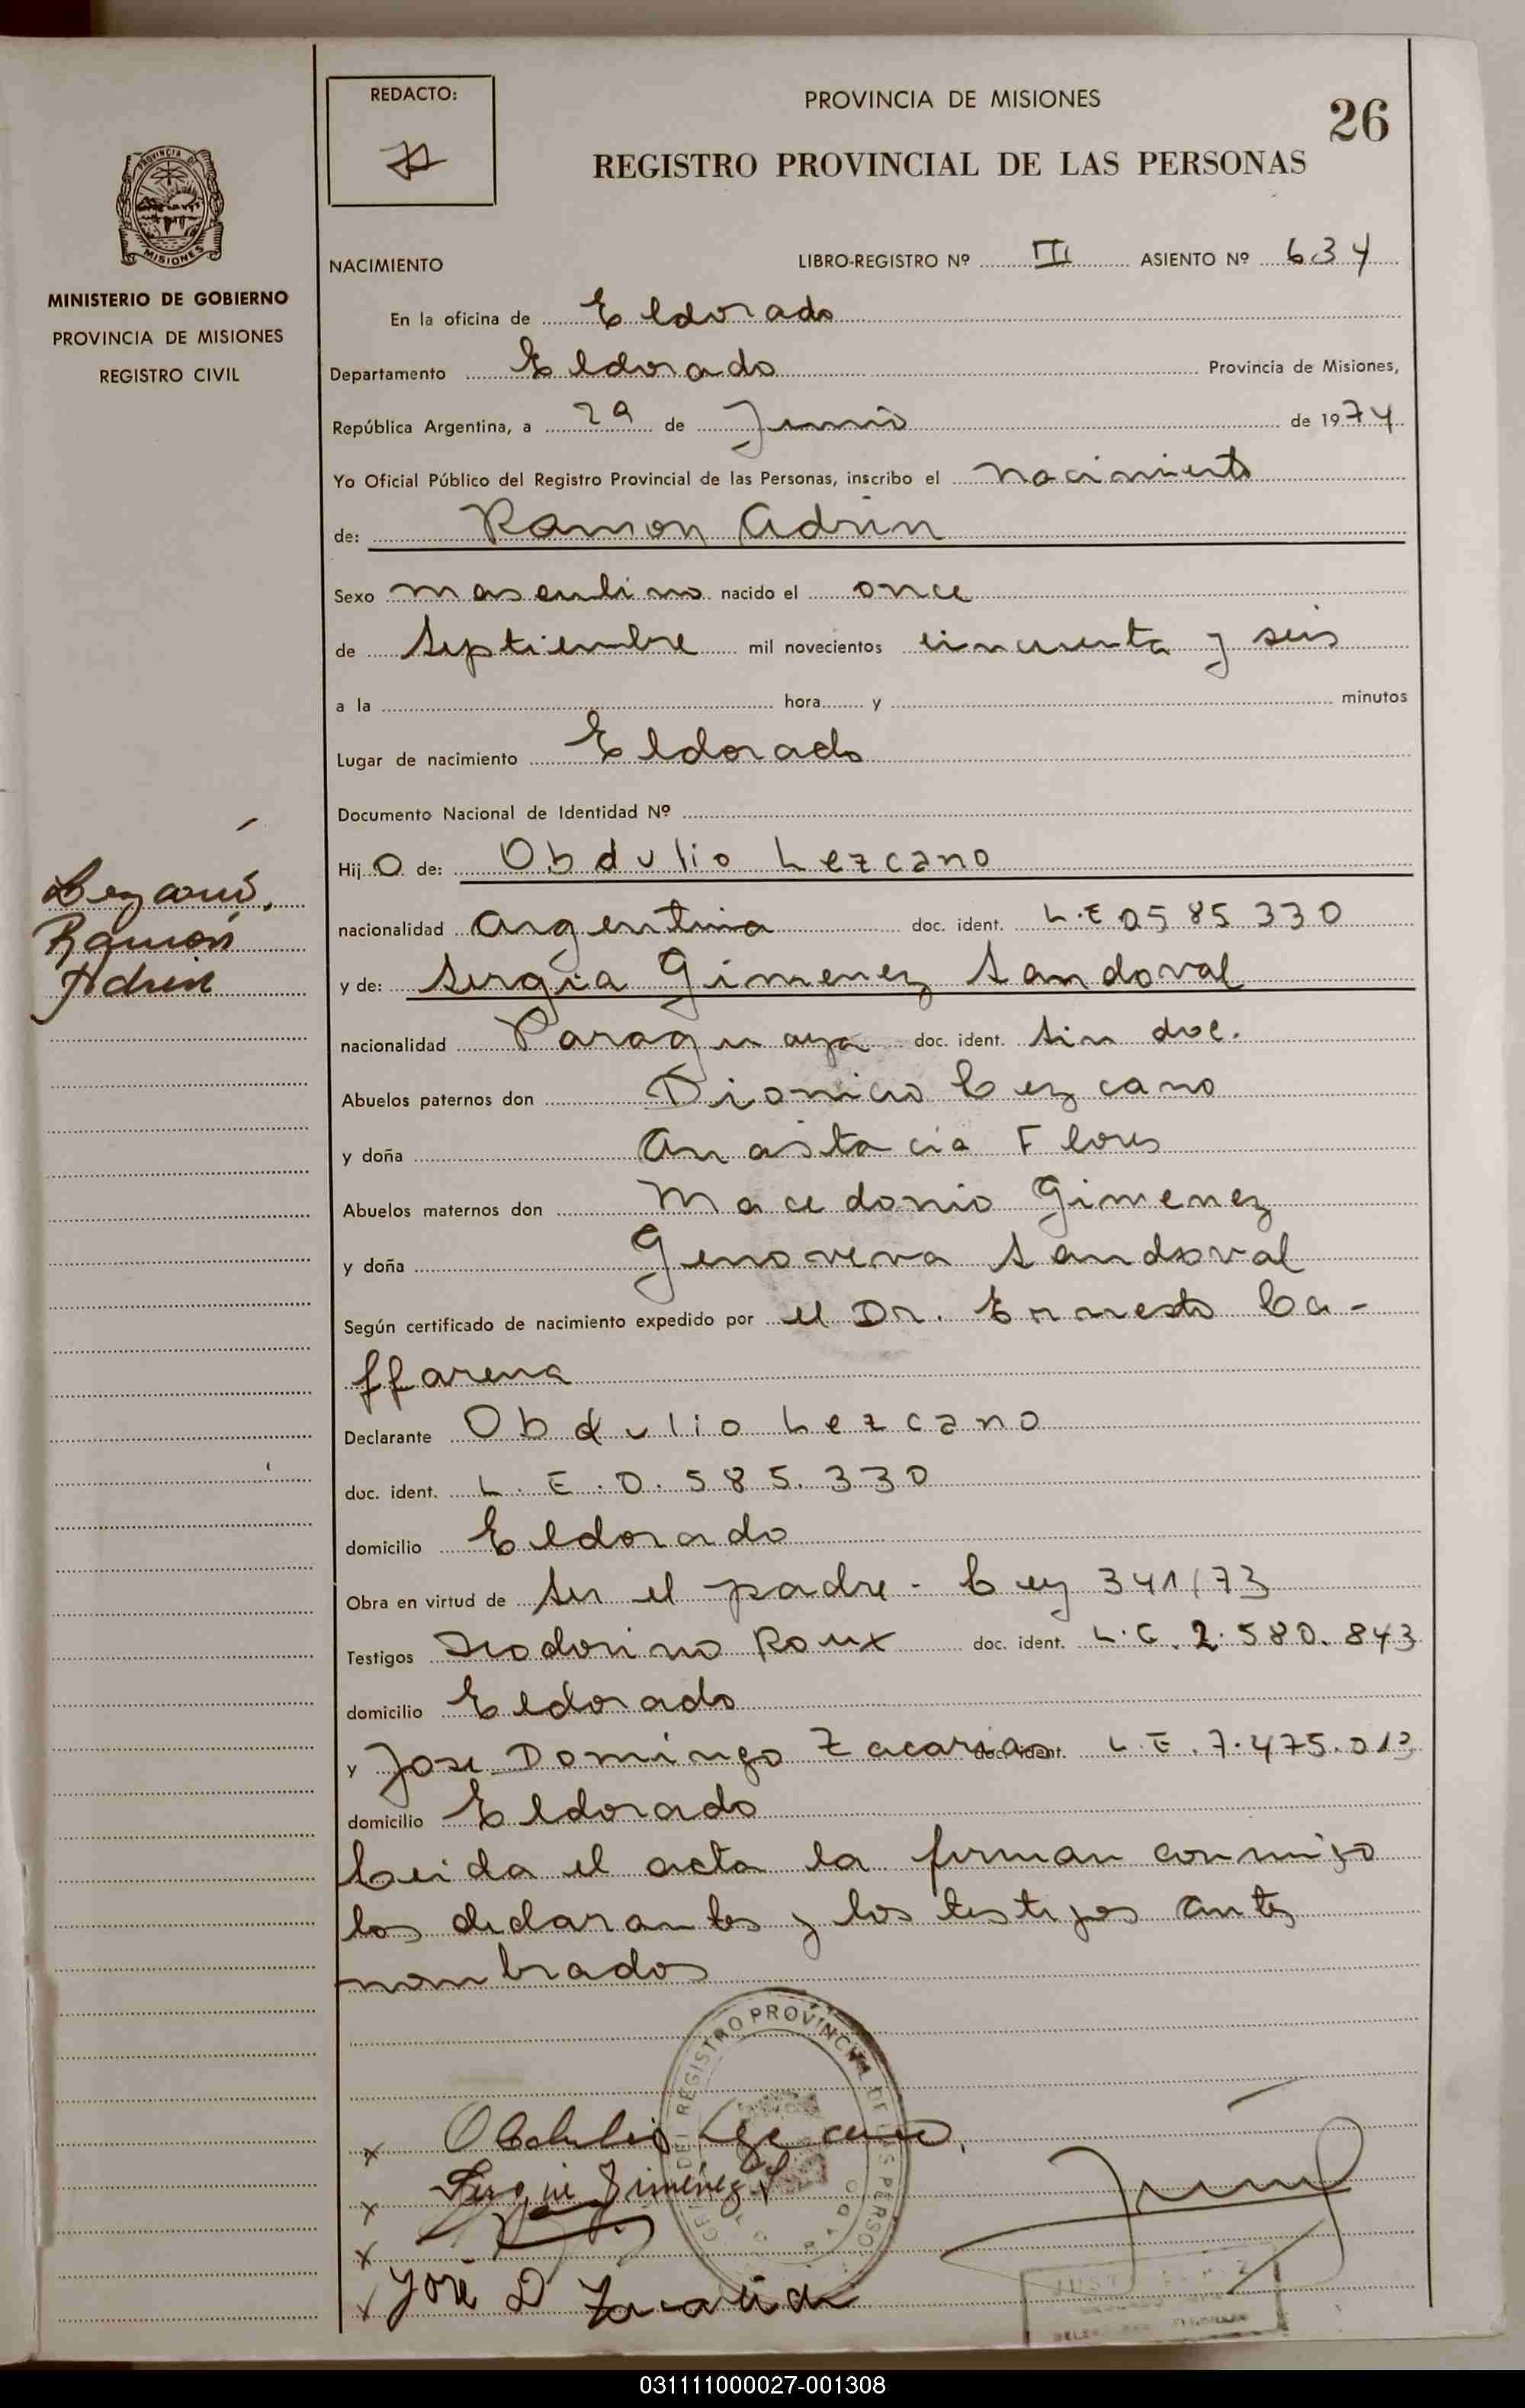 REDACTO:
PROVINCIA DE MISIONES
26
REGISTRO PROVINCIAL DE LAS PERSONAS
PROVINCIA DE
MISIONES
MINISTERIO DE GOBIERNO
PROVINCIA DE MISIONES
REGISTRO CIVIL
NACIMIENTO LIBRO-REGISTRO Nº III ASIENTO Nº 634
En la oficina de Eldorado
Departamento Eldorado Provincia de Misiones,
República Argentina, a 29 de Junio de 1974
Yo Oficial Público del Registro Provincial de las Personas, inscribo el nacimiento
de: Ramon Adrin
Sexo masculino nacido el once
de Septiembre mil novecientos cincuenta y seis
a la hora y minutos
Lugar de nacimiento Eldorado
Documento Nacional de Identidad Nº
Hij o de: Obdulio Lezcano
Lezcano,
Ramón
Adrin
nacionalidad argentina doc. ident. L.E 0585330
y de: Sergia Gimenez Sandoval
nacionalidad Paraguaya doc. ident. sin doc.
Abuelos paternos don Dionicio Lezcano
y doña Anastacia Flores
Abuelos maternos don Macedonio Gimenez
y doña Genoveva Sandoval
Según certificado de nacimiento expedido por el Dr. Ernesto Ca-
ffarena
Declarante Obdulio Lezcano
doc. ident. L.E.0.585.330
domicilio Eldorado
Obra en virtud de ser el padre - Ley 341/73
Testigos Teodorino Roux doc. ident. L.C. 2.580.843
domicilio Eldorado
y Jose Domingo Zacarias doc. ident. L.E. 7.475.013
domicilio Eldorado
Leida el acta la firman conmigo
los declarantes y los testigos antes
nombrados
REGISTRO PROVINCIAL DE LAS PERSO
x Obdulio Lezcano,
x Sergia Giménez S
x
x José D Zacarias
031111000027-001308